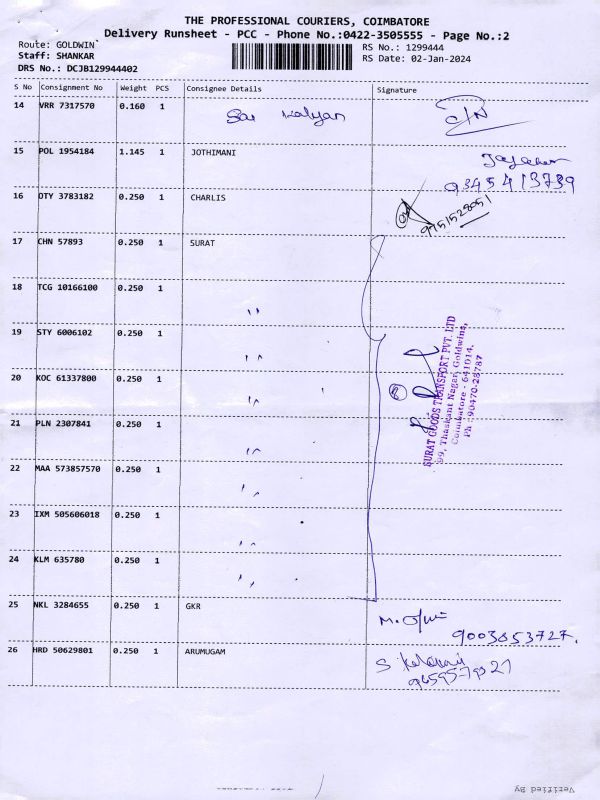 THE PROFESSIONAL COURIERS, COIMBATORE
Delivery Runsheet - PCC - Phone No.:0422-3505555 - Page No.:2
Route: GOLDWIN
Staff: SHANKAR
DRS No.: DCJB129944402
RS No.: 1299444
RS Date: 02-Jan-2024
S No Consignment No Weight PCS Consignee Details Signature
14 VRR 7317570 0.160 1 Sai Kalyan C/N
15 POL 1954184 1.145 1 JOTHIMANI
9345413739
16 OTY 3783182 0.250 1 CHARLIS
9751528051
17 CHN 57893 0.250 1 SURAT
18 TCG 10166100 0.250 1 "
19 STY 6006102 0.250 1 "
20 KOC 61337800 0.250 1 "
21 PLN 2307841 0.250 1 "
22 MAA 573857570 0.250 1 "
23 IXM 505606018 0.250 1 "
24 KLM 635780 0.250 1 "
SURAT GOODS TRANSPORT PVT. LTD
99, Thaskant Nagar, Goldwins,
Coimbatore - 641014.
Ph : 90470-28787
25 NKL 3284655 0.250 1 GKR
9003853727.
26 HRD 50629801 0.250 1 ARUMUGAM
Verified By